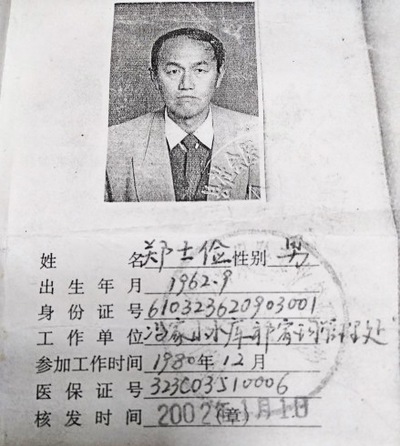 姓 名 郑士俭 性别 男
出生年月 1962.9
身份证号 610323620903001
工作单位 冯家山水库郭家河管理处
参加工作时间 1980年12月
医保证号 323C03510006
核发时间 2002年(章)1月1日